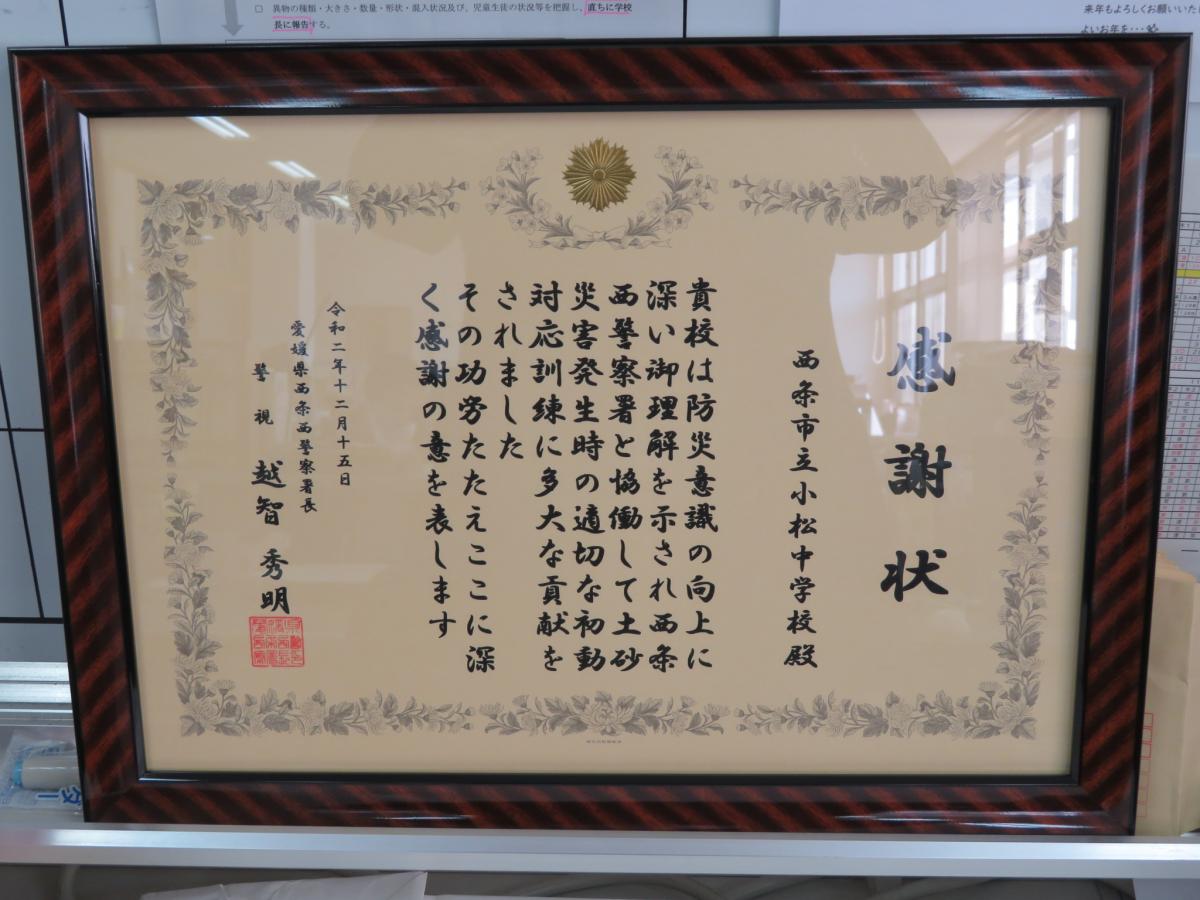 □ 異物の種類・大きさ・数量・形状・混入状況及び、児童生徒の状況等を把握し、直ちに学校
長に報告する。
来年もよろしくお願いいた
よいお年を・・・
感謝状
西条市立小松中学校殿
貴校は防災意識の向上に
深い御理解を示され西条
西警察署と協働して土砂
災害発生時の適切な初動
対応訓練に多大な貢献を
されました
その功労たたえここに深
く感謝の意を表します
令和二年十二月十五日
愛媛県西条西警察署長
警視 越智秀明